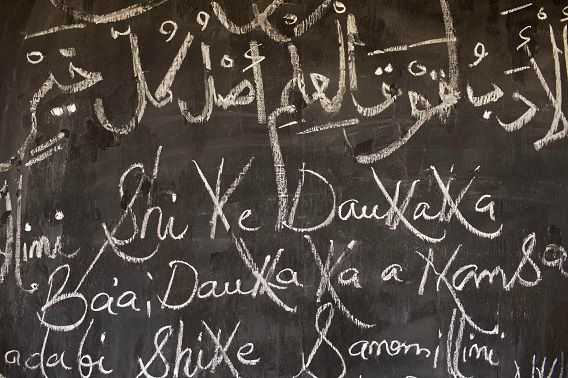 الأدبُ فوق العلم أصلُ كُل خيْرٍ
llini Shi Ke DauKaKa
Ba'a, DauKaKa a Kamsa
adabi ShiKe Sanomillini